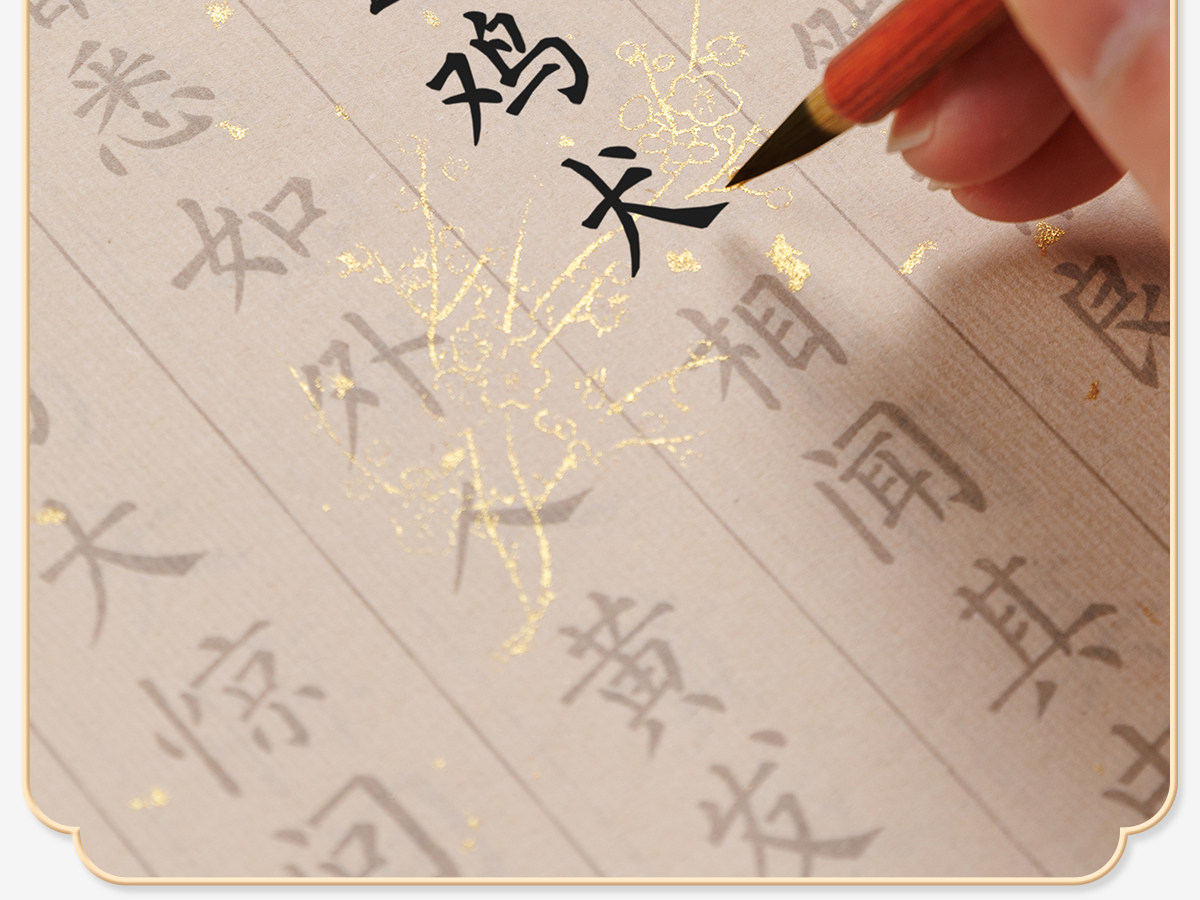 良
鸡犬相闻其中
悉如外人黄发
大惊问